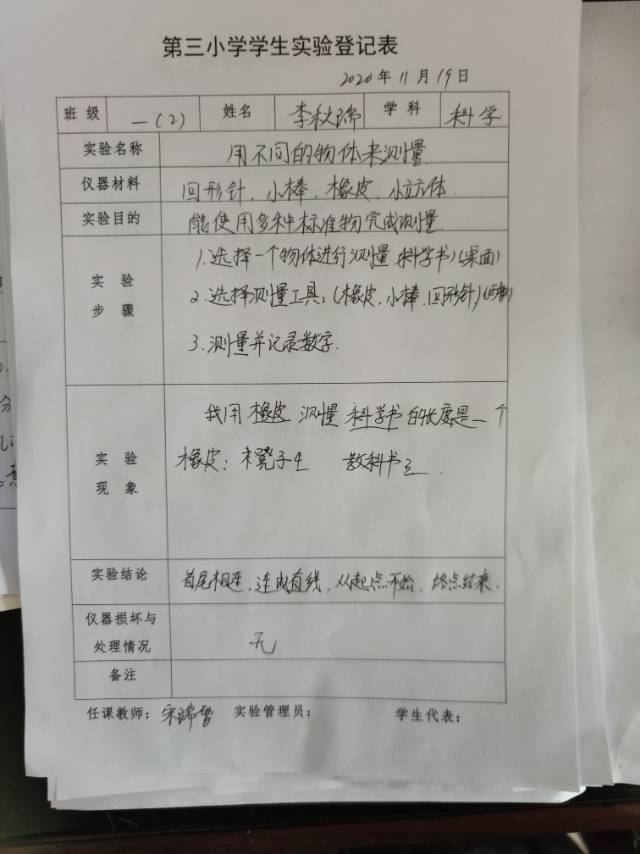 第三小学学生实验登记表
2020年11月19日
班级 一(2) 姓名 李秋瑞 学科 科学
实验名称 用不同的物体来测量
仪器材料 回形针、小棒、橡皮、小立方体.
实验目的 能使用多种标准物完成测量.
实验步骤
1.选择一个物体进行测量 (科学书)(桌面)
2.选择测量工具:(橡皮、小棒、回形针)
3.测量并记录数字.
实验现象
我用橡皮 测量 科学书 的长度是 一个
橡皮: 凳子4 教科书3.
实验结论 首尾相连,连成直线,从起点开始、终点结束.
仪器损坏与处理情况 无
备注
任课教师: 宋瑞 实验管理员: 学生代表: